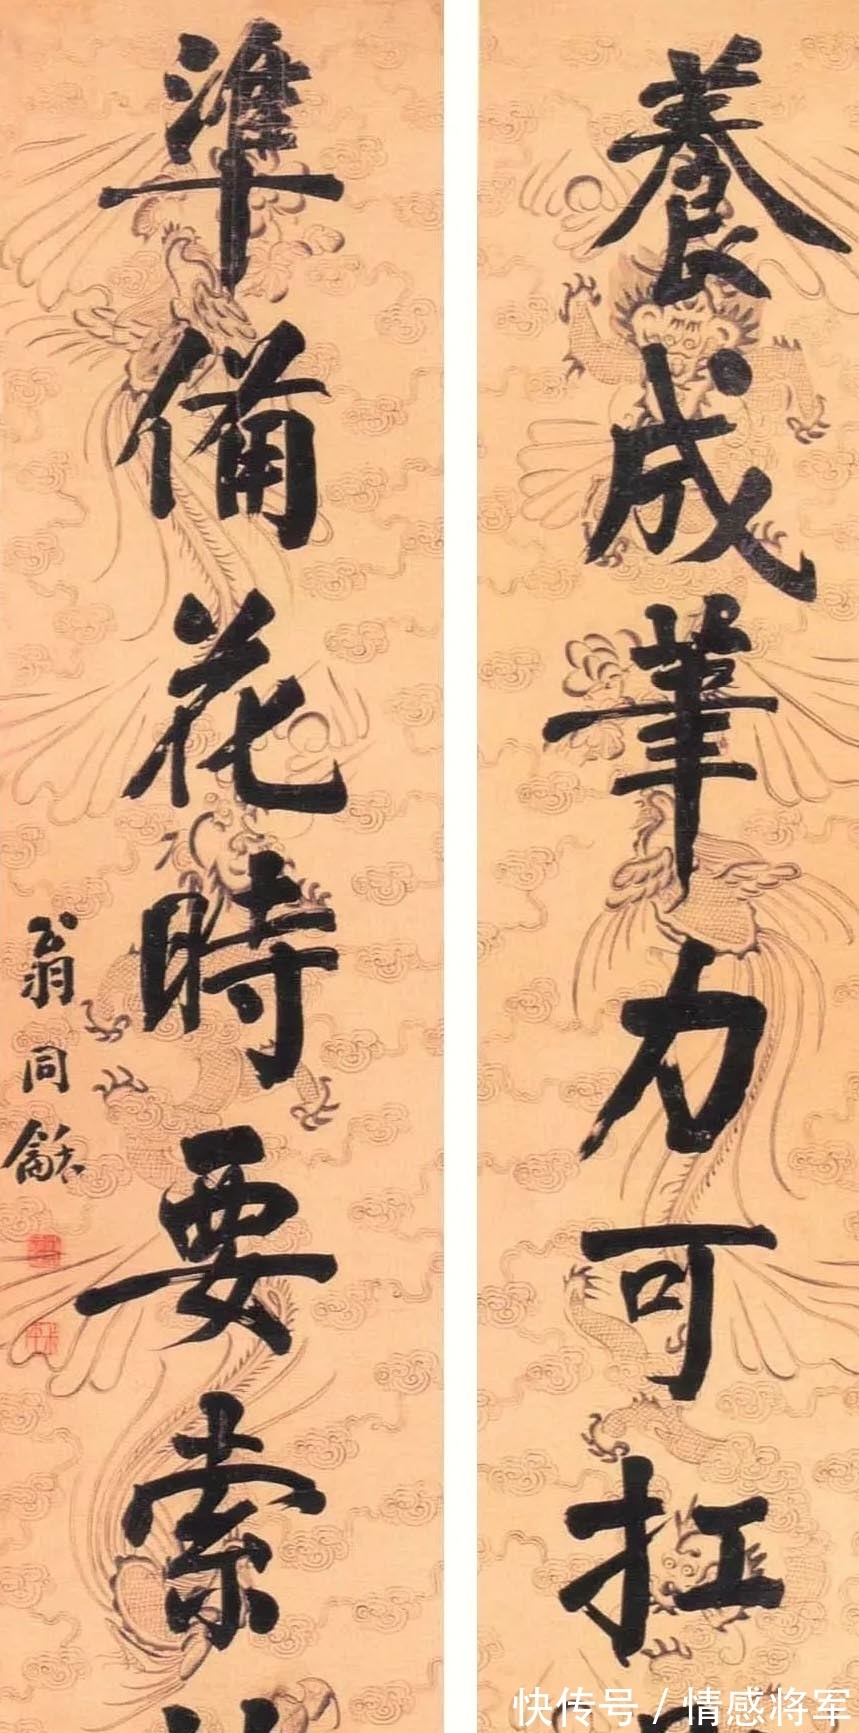 養成筆力可扛
準備花時要索
翁同龢
快传号 / 情感将军